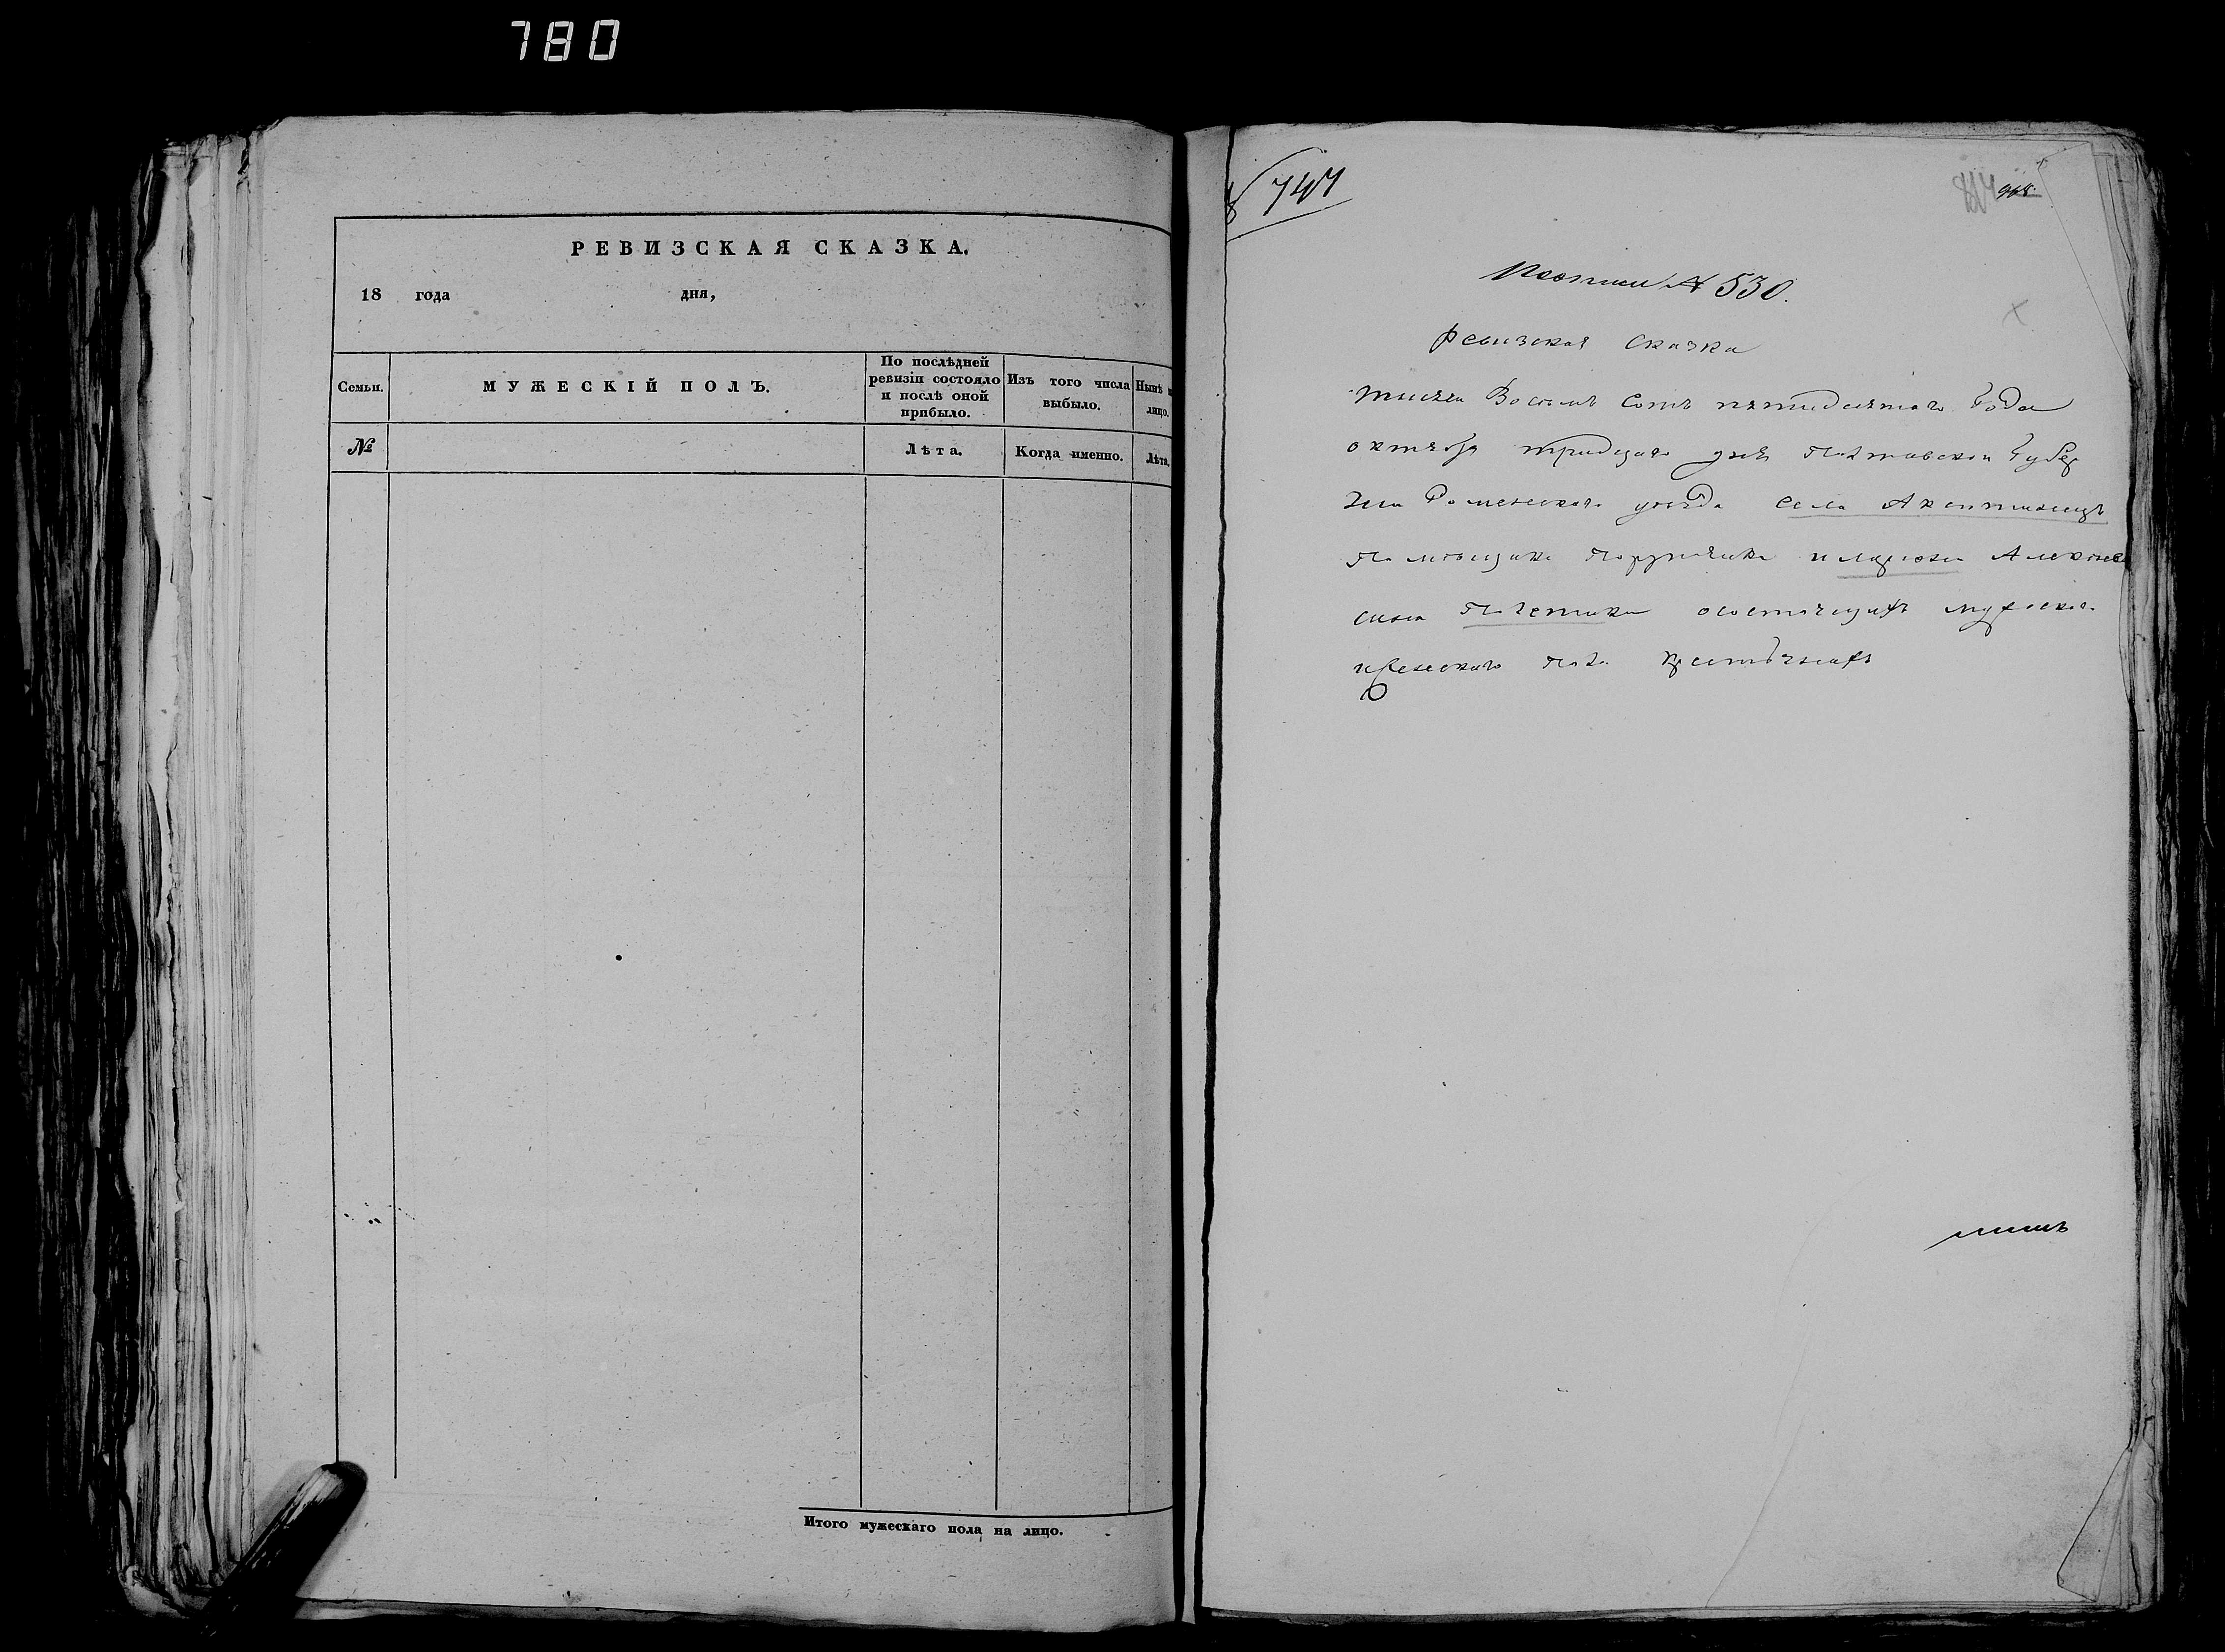 780
РЕВИЗСКАЯ СКАЗКА.
18 года дня,
Семьи.
МУЖЕСКІЙ ПОЛЪ.
По послѣдней
ревизіи состояло
и послѣ оной
прибыло.
Изъ того числа
выбыло.
Нынѣ н
лицо.
№
Лѣта.
Когда именно.
Лѣта.
Итого мужескаго пола на лицо.
747
968.
По описи № 530.
Ревизская Сказка
тысяча Восемь Сотъ пятидесятаго Года
октября тридцать дня Полтавской Губер
нии Роменскаго уезда села Аксютинецъ
Помещика Поручика илариона Алексеева
сына Полетики осостоящихъ мужеска
иженскаго пола крестьянахъ